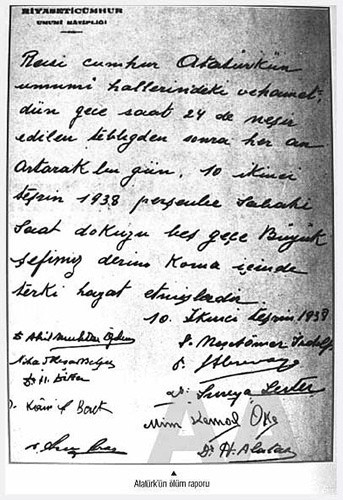 RİYASETİCÜMHUR
UMUMİ KÂTİPLİĞİ
Reisi cumhur Atatürkün
umumi hallerindeki vehamet,
dün gece saat 24 de neşır
edilen tebliğden sonra her an
artarak bu gün, 10 ikinci
teşrin 1938 perşenbe sabahı
saat dokuzu beş geçe Büyük
şefimiz derin koma içinde
terki hayat etmişlerdir.
10. İkinci teşrin 1938
Dr. Akil Muhtar Özden
Dr. Süreya Serter
Mim Kemal Öke
Dr. H. Alataş
AA
Atatürk'ün ölüm raporu